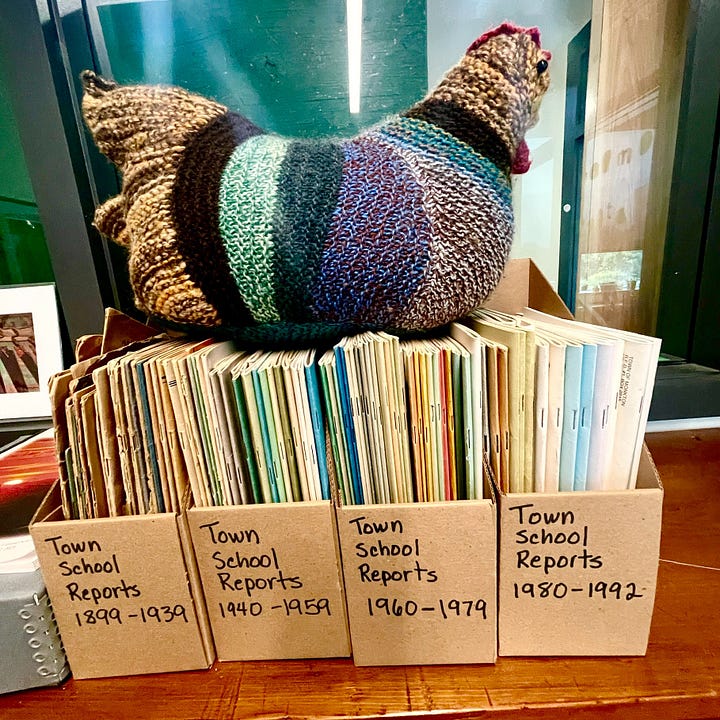 Town
School
Reports
1899-1939
Town
School
Reports
1940-1959
Town
School
Reports
1960-1979
Town
School
Reports
1980-1992
TOWN OF MONKTON